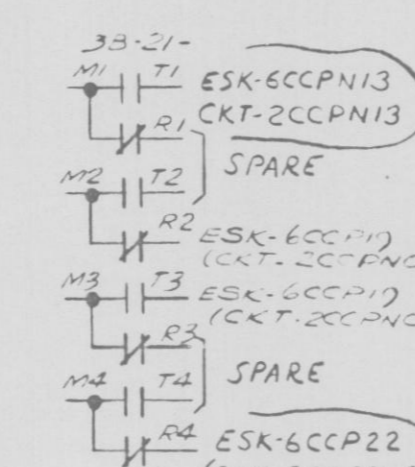 3B-21-
M1 T1 ESK-6CCPN13
CKT-2CCPN13
R1
SPARE
M2 T2
R2 ESK-6CCP19
(CKT-2CCPNC
M3 T3 ESK-6CCP19
(CKT-2CCPNC
R3
SPARE
M4 T4
R4 ESK-6CCP22